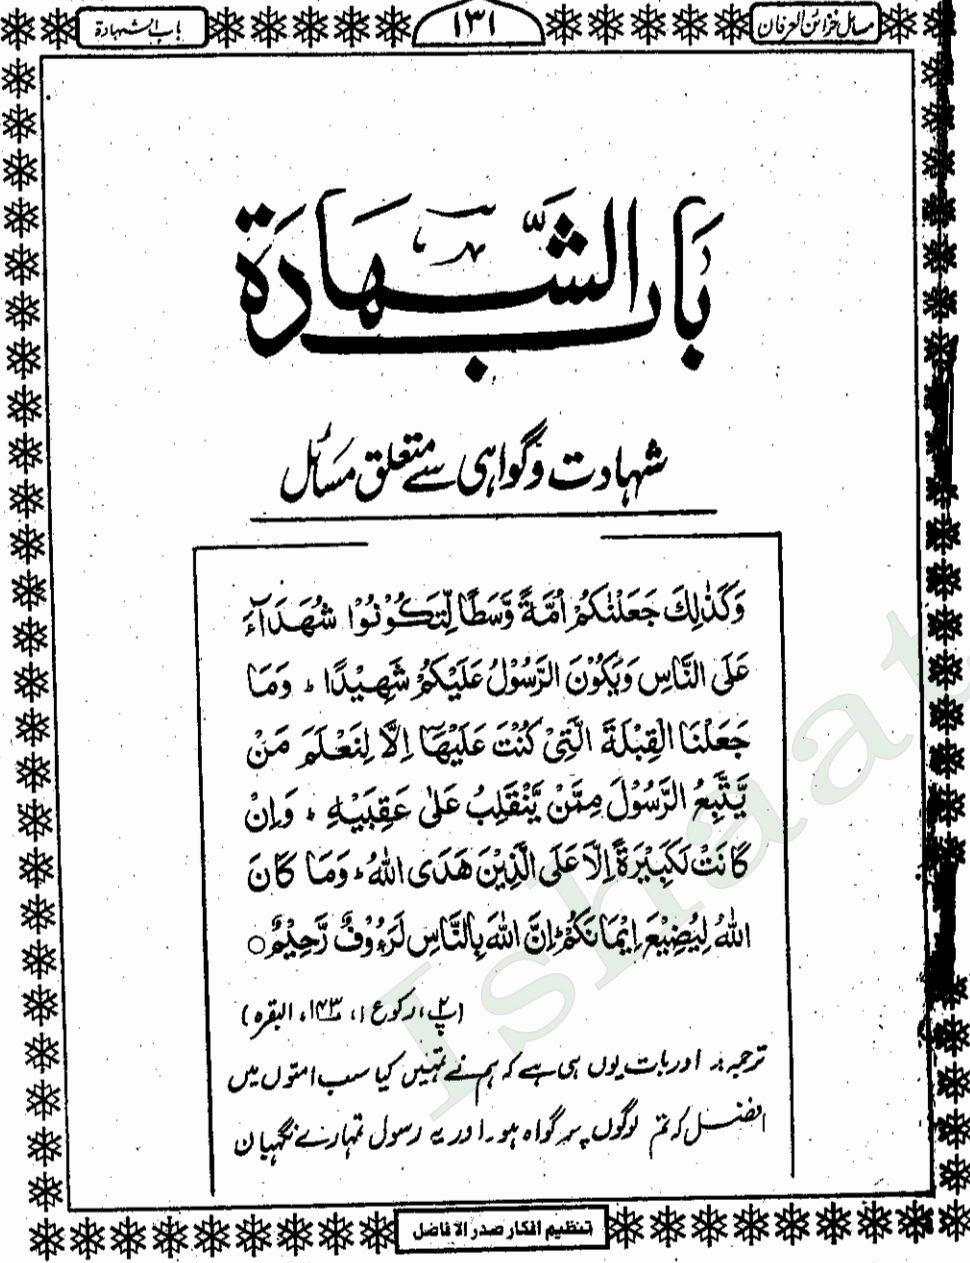 مسائل خزائن العرفان
۱۳۱
باب الشہادۃ
بَابُ الشَّہَادَۃ
شہادت و گواہی سے متعلق مسائل
وَكَذٰلِكَ جَعَلْنٰكُمْ اُمَّةً وَّسَطًا لِّتَكُوْنُوْا شُهَدَآءَ
عَلَى النَّاسِ وَيَكُوْنَ الرَّسُوْلُ عَلَيْكُمْ شَهِيْدًا ؕ وَمَا
جَعَلْنَا الْقِبْلَةَ الَّتِىْ كُنْتَ عَلَيْهَآ اِلَّا لِنَعْلَمَ مَنْ
يَّتَّبِعُ الرَّسُوْلَ مِمَّنْ يَّنْقَلِبُ عَلٰى عَقِبَيْهِ ؕ وَاِنْ
كَانَتْ لَكَبِيْرَةً اِلَّا عَلَى الَّذِيْنَ هَدَى اللّٰهُ ؕ وَمَا كَانَ
اللّٰهُ لِيُضِيْعَ اِيْمَانَكُمْ ؕ اِنَّ اللّٰهَ بِالنَّاسِ لَرَءُوْفٌ رَّحِيْمٌ ○
(پ۲، رکوع ۱، ۱۴۳، البقرہ)
ترجمہ:۔ اور بات یوں ہی ہے کہ ہم نے تمہیں کیا سب امتوں میں
افضل کہ تم لوگوں پر گواہ ہو۔ اور یہ رسول تمہارے نگہبان
تنظیم افکار صدر الافاضل
Ishaat